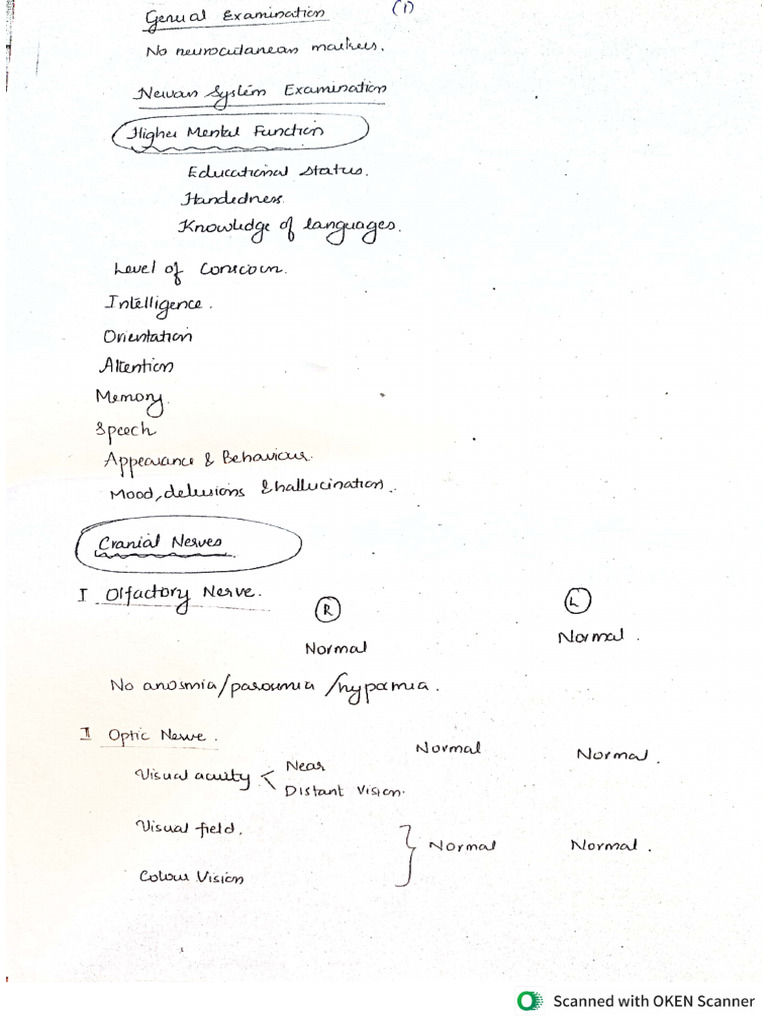 General Examination (1)
No neurocutanean markers.
Nervous System Examination
Higher Mental Function
Educational status.
Handedness
Knowledge of languages.
Level of Conscious.
Intelligence.
Orientation
Attention
Memory.
Speech
Appearance & Behaviour.
Mood, delusions & hallucination.
Cranial Nerves
I Olfactory Nerve.
R L
Normal Normal.
No anosmia/parosmia/hyposmia.
II Optic Nerve.
Normal Normal.
Visual acuity < Near
Distant Vision.
Visual field.
} Normal Normal.
Colour Vision
Scanned with OKEN Scanner